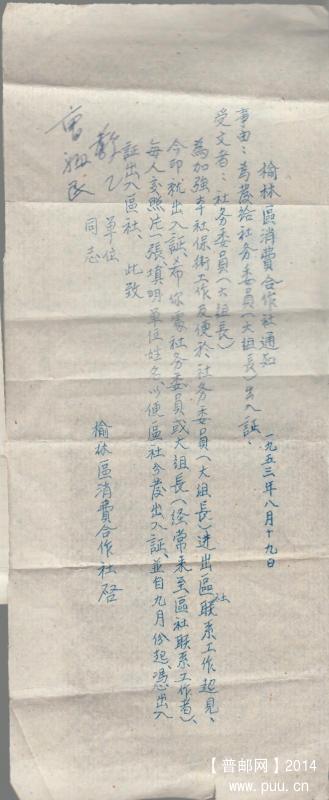 榆林區消費合作社通知
一九五三年八月十九日
事由：為發給社务委員(大組長)出入証、
受文者：社务委員(大組長)
為加強本社保衛工作及便於社务委員(大組長)進出區社联系工作起見、
今印就出入証、希你處社务委員或大組長(经常来至區社联系工作者)、
每人交照片一張、填明單位姓名以便區社分發出入証、並自九月份起、憑出入
証出入區社、 此致
單位
同志
榆林區消費合作社啓
【普邮网】2014
www.puu.cn